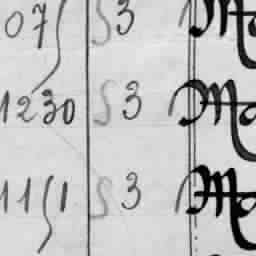 07 S3 Ma
1230 S3 Ma
11S1 S3 Ma